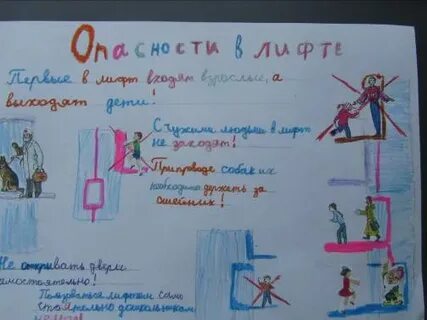 Опасности в лифте
Первые в лифт входят взрослые, а
выходят дети!
С чужими людьми в лифт
не заходят!
При проводе собак их
необходимо держать за
ошейник!
Не открывать двери
самостоятельно!
Пользоваться лифтом само
стоятельно дошкольникам